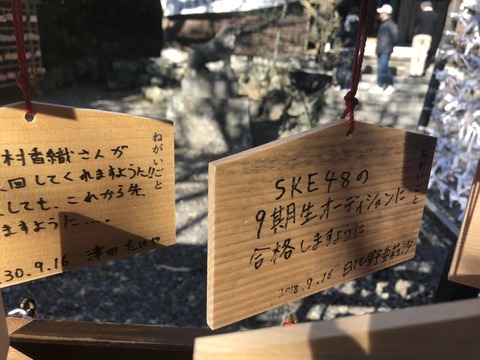 ねがいごと
村香織さんが
回してくれますように!!
しても、これから先
ますように....
30.9.16 澤田
ねがいごと
SKE48の
9期生オーディションに
合格しますように
2018.9.16 日比野亜莉沙